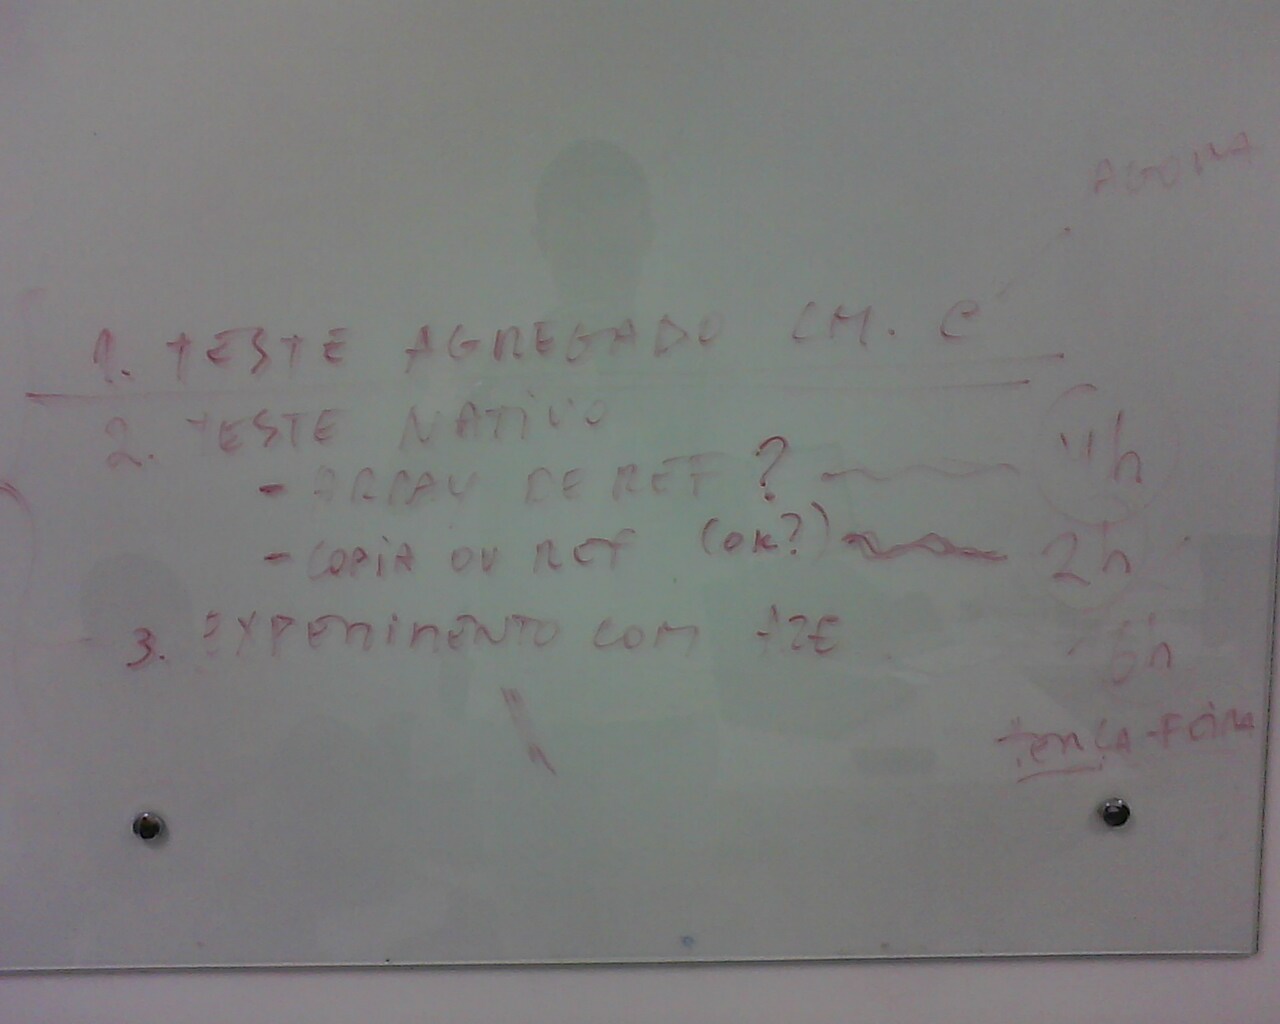 AGORA
1. TESTE AGREGADO CM. C
2. TESTE NATIVO
- ARRAY DE REF ? 4h
- COPIA OU REF (OK?) 2h
3. EXPERIMENTO COM
6h
TERÇA-FEIRA